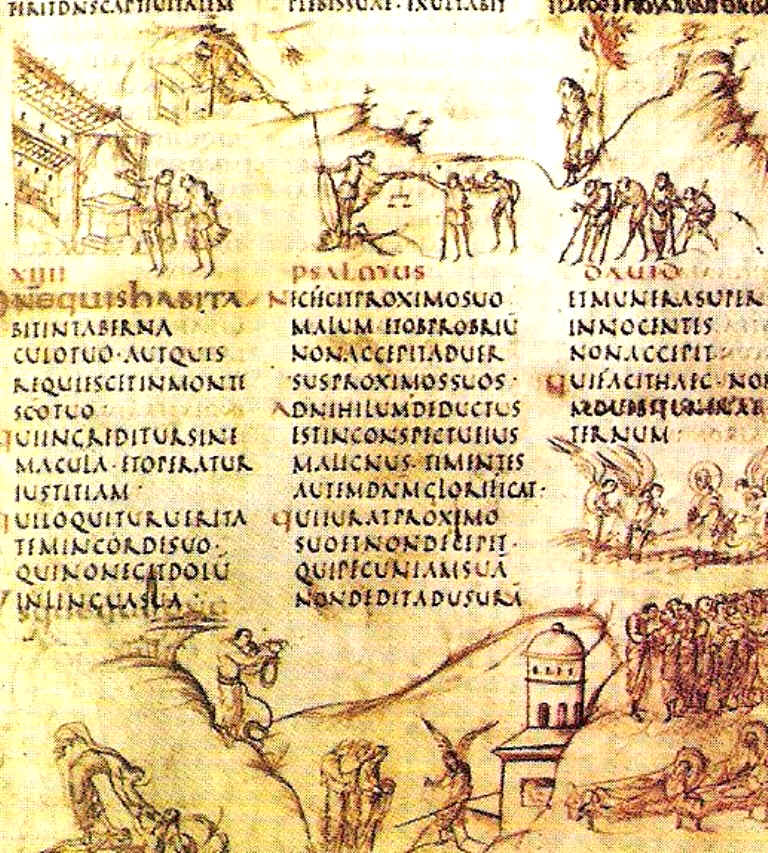 TERITDNSCAPTIUITATEM
PLEBISSUAE · EXULTABIT
XIIII
PSALMUS
DAUID
DNEQUISHABITA
BITINTABERNA
CULOTUO · AUTQUIS
REQUIESCETINMONTE
SCOTUO
QUIINGREDITURSINE
MACULA · ETOPERATUR
IUSTITIAM ·
QUILOQUITURUERITA
TEMINCORDESUO ·
QUINONEGITDOLŪ
INLINGUASUA ·
NECFECITPROXIMOSUO
MALUM · ETOBPROBRIŪ
NONACCEPITADUER
SUSPROXIMOSSUOS ·
ADNIHILUMDEDUCTUS
ESTINCONSPECTUEIUS
MALIGNUS · TIMENTES
AUTEMDNMGLORIFICAT ·
QUIIURATPROXIMO
SUOETNONDECEPIT ·
QUIPECUNIAMSUĀ
NONDEDITADUSURĀ
ETMUNERASUPER
INNOCENTES
NONACCEPIT
QUIFACITHAEC · NON
MOUEBITURINAE
TERNUM